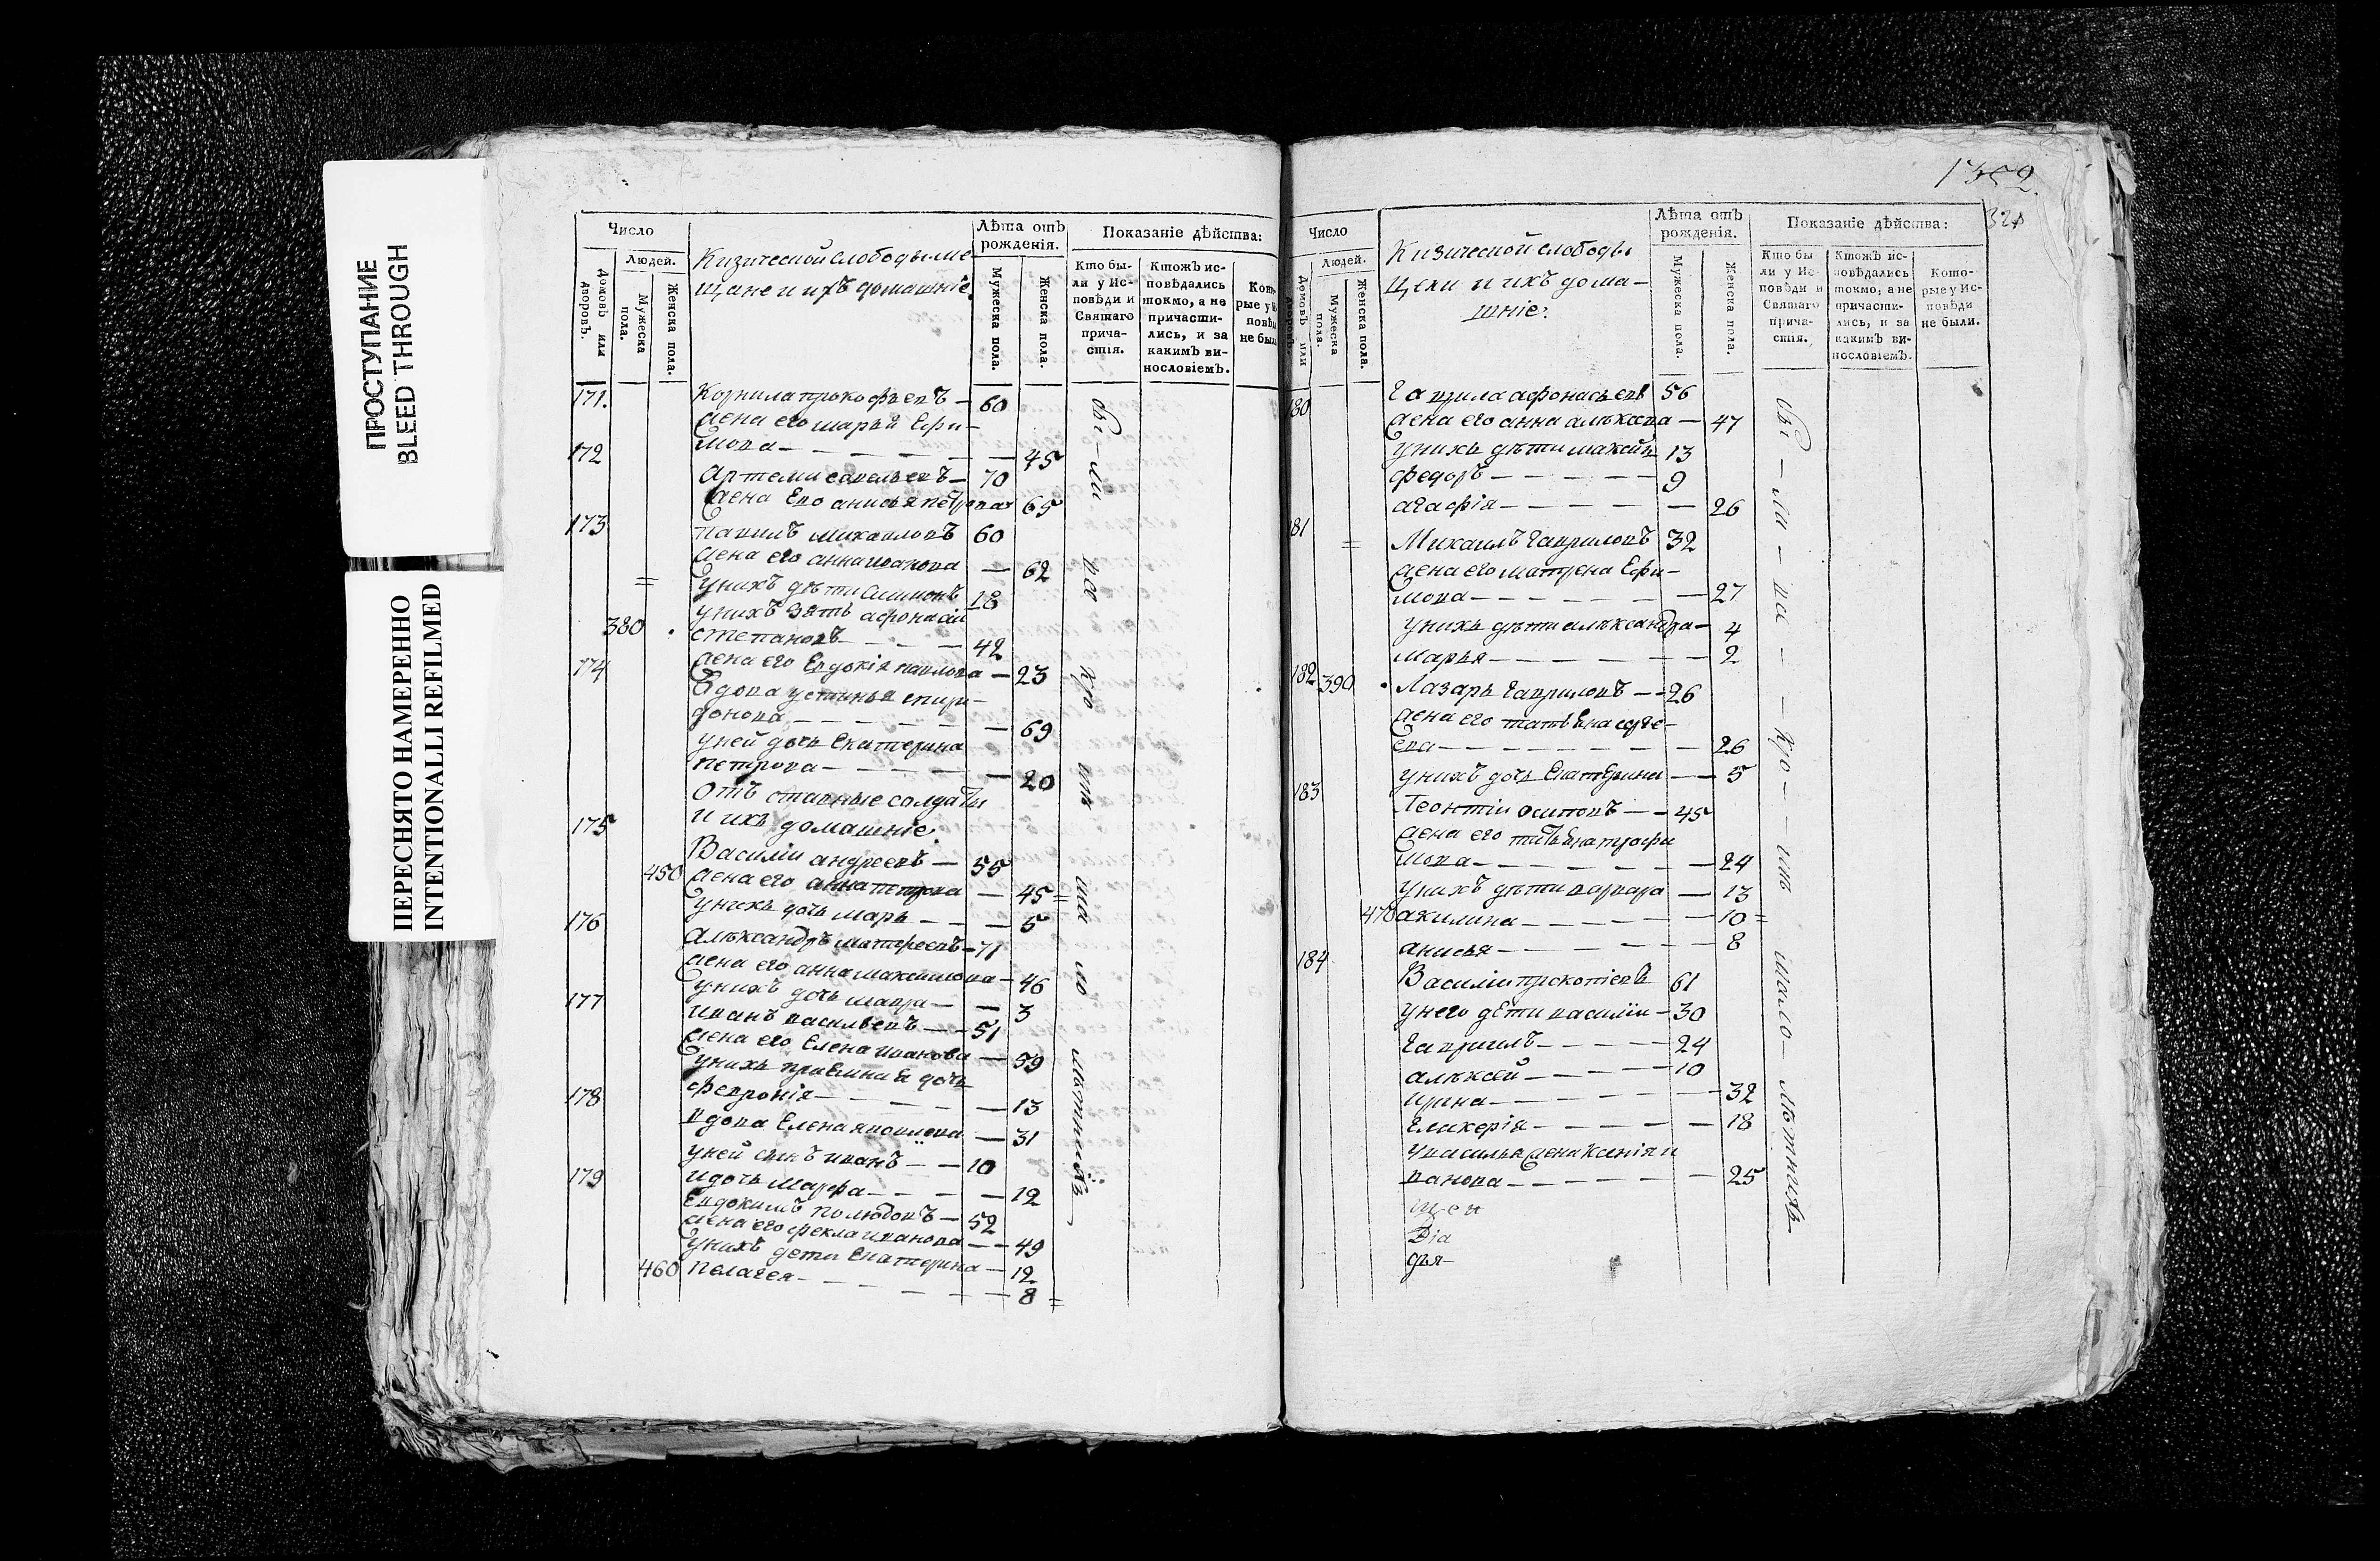 ПРОСТУПАНИЕ
BLEED THROUGH
ПЕРЕСНЯТО НАМЕРЕННО
INTENTIONALLI REFILMED
Число
Людей.
Домовъ или дворовъ.
Мужеска пола.
Женска пола.
Кизической слободы ме
щане и ихъ домашніе
Лѣта отъ рожденія.
Мужеска пола.
Женска пола.
Показаніе дѣйства:
Кто бы-
ли у Ис-
повѣди и
Святаго
прича-
стія.
Ктожъ ис-
повѣдались
токмо, а не
причасти-
лись, и за
какимъ ви-
нословіемъ.
Кото
рые у И
повѣ
не бы
171. Корнила прокофьевъ — 60
жена его марья Ефи-
мова — 45
172 Артеми савельевъ — 70
жена Его анисья петрова 65
173 павилъ михаиловъ 60
жена его анна иванова — 62
= У нихъ дѣти Симионъ 18
у нихъ зять афонасій
380 степановъ — 42
жена его Евдокія павлова — 23
174 Вдова устинья спири-
донова — 69
у ней дочь Екатерина
петрова — 20
Отъ ставные солдаты
и ихъ домашніе
175 Василіи андреевъ — 55
450 жена его анна петрова — 45 =
У нихъ дочь марья — 5
176 Александръ матвеевъ — 71
жена его анна максимова — 46
У нихъ дочь мавра — 3
177 иванъ васильевъ — 51
жена его Елена иванова — 59
У нихъ приемная дочь
феврония — 13
178 вдова Елена яковлева — 31
у ней сынъ иванъ — 10
и дочь марфа — 12
179 Евдокимъ полюбовъ — 52
жена его фекла иванова — 49
У нихъ дети Екатерина — 12
460 пелагея — 8 =
бы-ли все кро мѣ ма ло лѣтнихъ
1352
321
Число
Людей.
Домовъ или дворовъ.
Мужеска пола.
Женска пола.
Кизической слободы
щеки и ихъ дома-
шніе.
Лѣта отъ рожденія.
Мужеска пола.
Женска пола.
Показаніе дѣйства:
Кто бы
ли у Ис-
повѣди и
Святаго
прича-
стія.
Ктожъ ис-
повѣдались
токмо, а не
причасти-
лись, и за
какимъ ви-
нословіемъ.
Кото-
рые у Ис-
повѣди
не были.
180 Гаврила афонасьевъ 56
жена его анна алѣксева — 47
У нихъ дѣти максимъ 13
федоръ — 9
агафія — 26
181 = Михаилъ Гавриловъ 32
жена его матрена Ефи-
мова — 27
У нихъ дѣти алѣксандра — 4
марья — 2
182 390 Лазарь Гавриловъ — 26
жена его татьяна серге-
ева — 26
у нихъ дочь Екатерина — 5
183 Леонтіи осиповъ — 45
жена его татьяна трофи
мова — 24
У нихъ дѣти варвара — 13
470 акилина — 10 =
анисья — 8
184 Василіи прокопіевъ 61
у него дѣти василіи — 30
гавриилъ — 24
алѣксей — 10
ирина — 32
Гликерія — 18
У василья жена Ксенія и
ванова — 25
щен
Діа
дья
бы — ли — все — кро — мѣ мало — лѣтнихъ